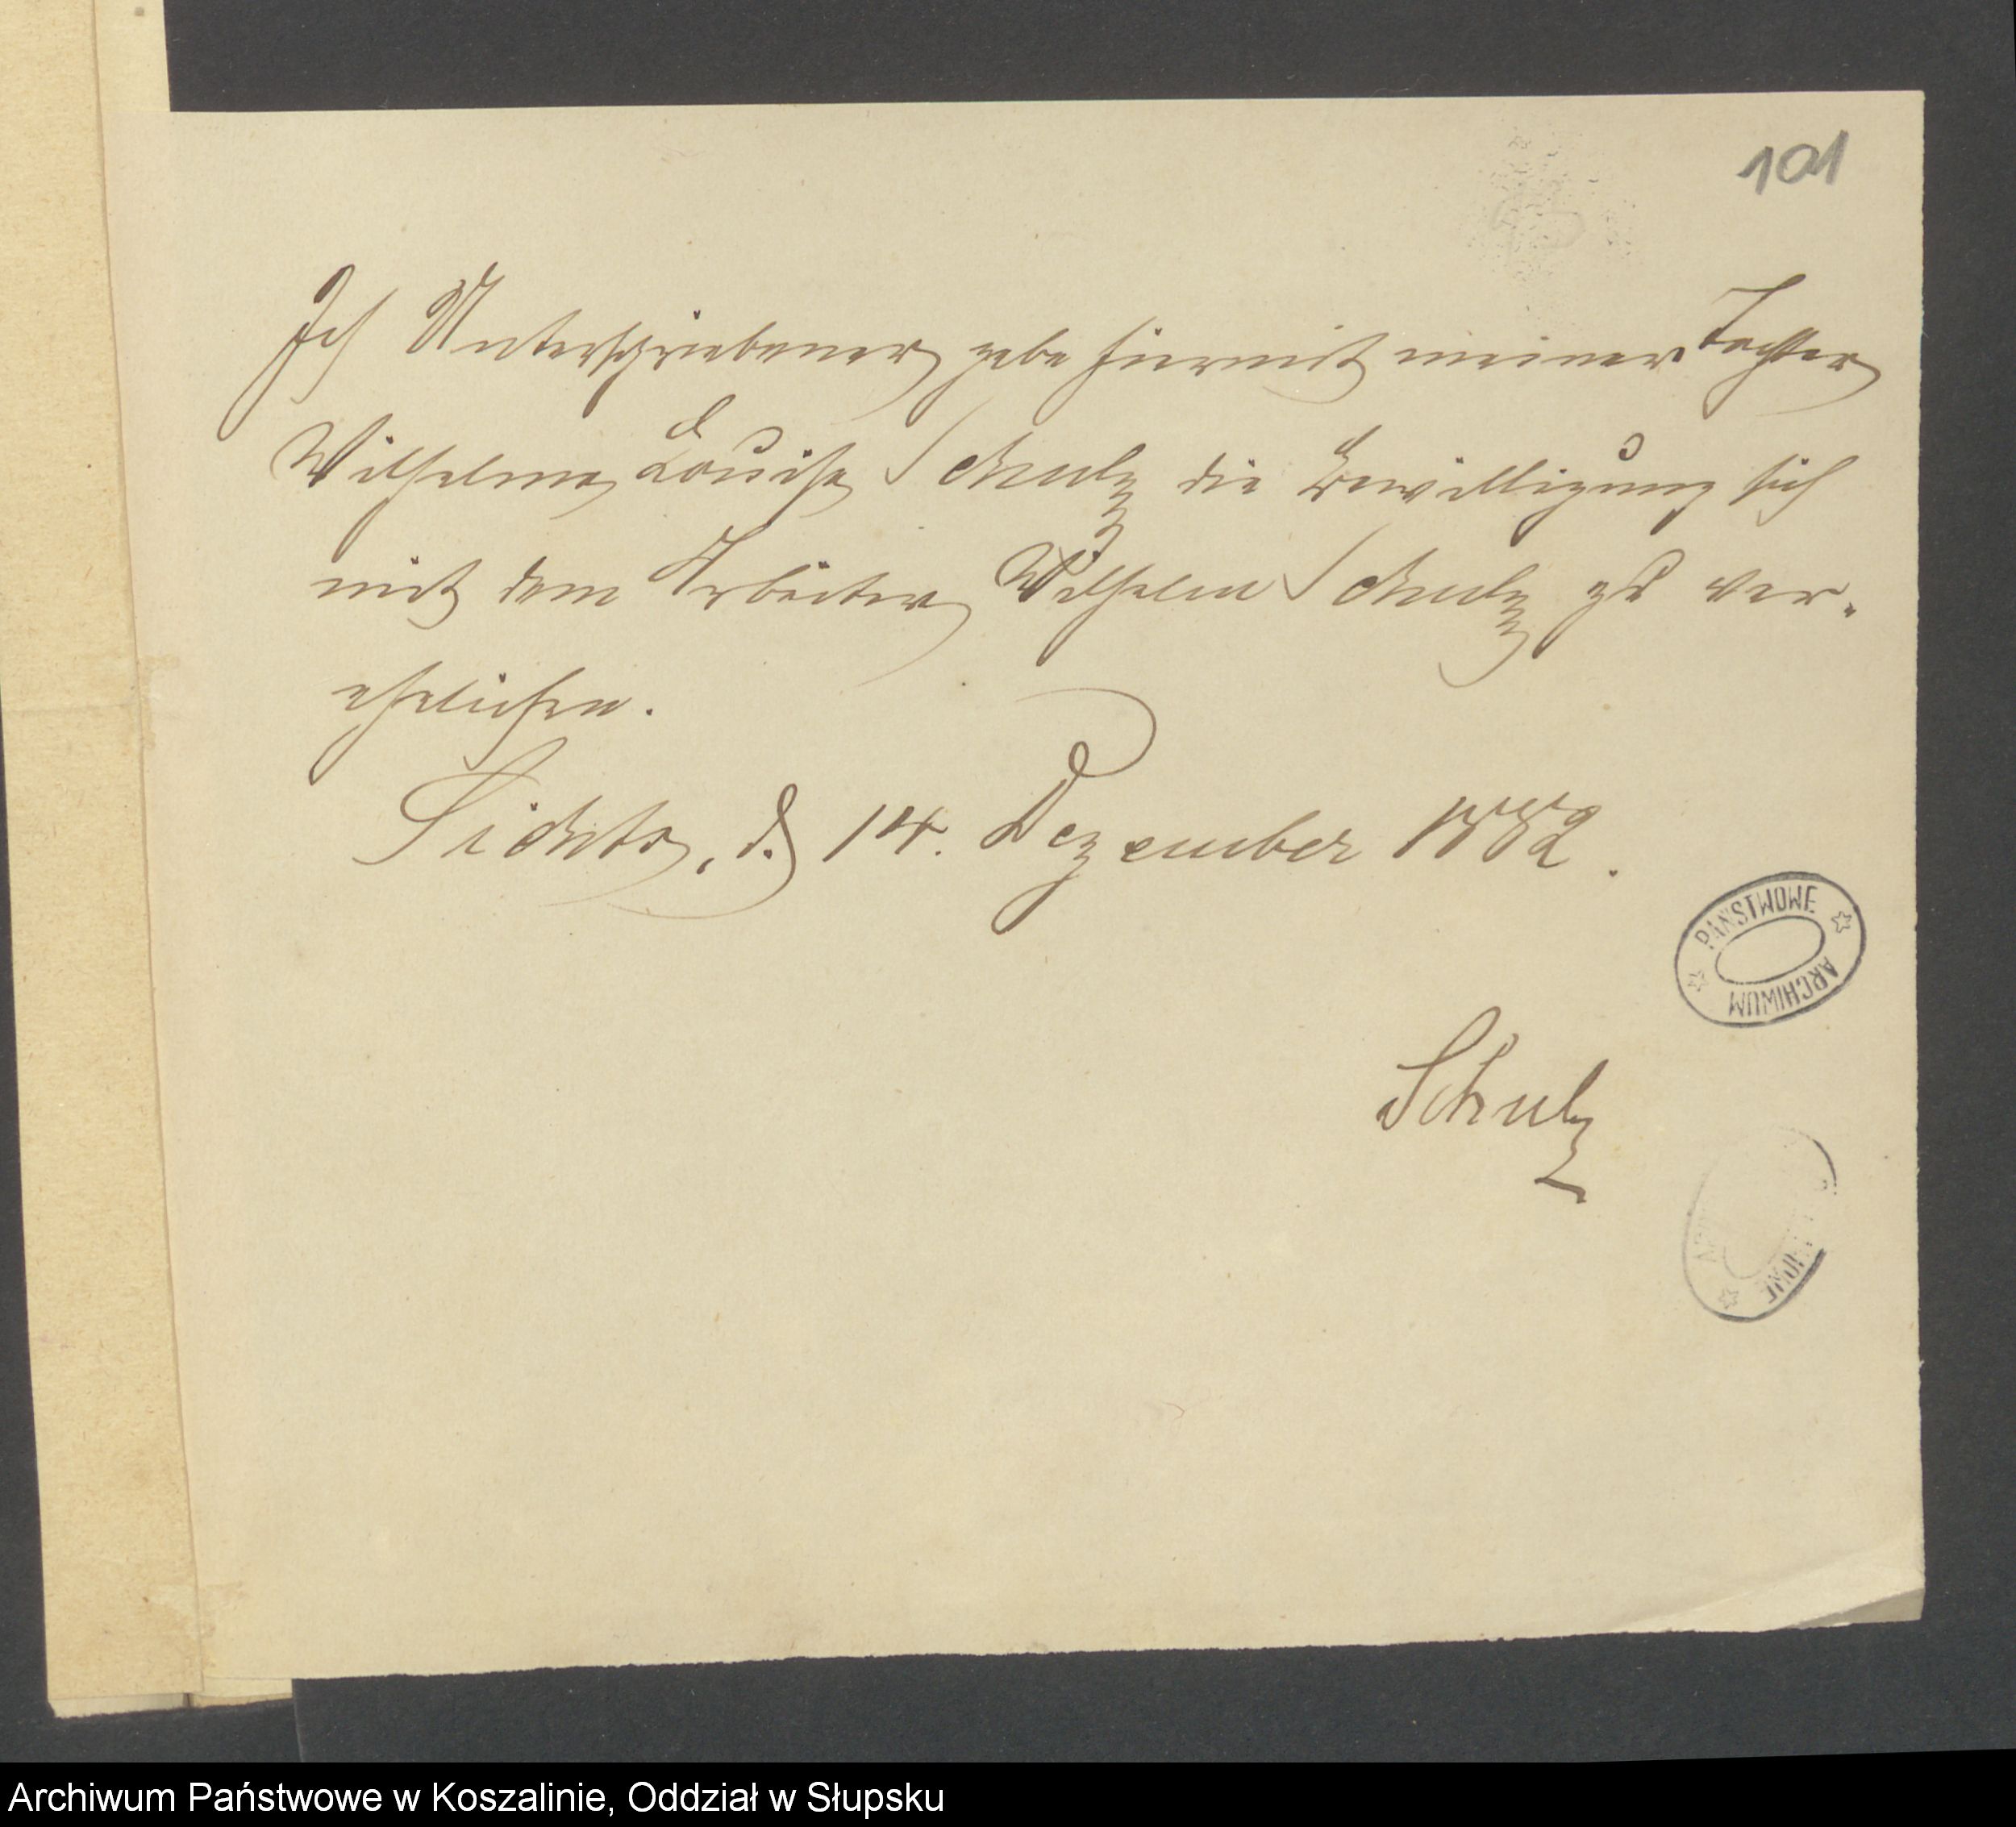 101
Ich Unterschriebener gebe hiermit meiner Tochter
Wilhelme Louise Schulz die Bewilligung sich
mit dem Arbeiter Wilhelm Schulz zu ver-
ehelichen.
d. 14. Dezember 1882.
PAŃSTWOWE
ARCHIWUM
Schulz
Archiwum Państwowe w Koszalinie, Oddział w Słupsku